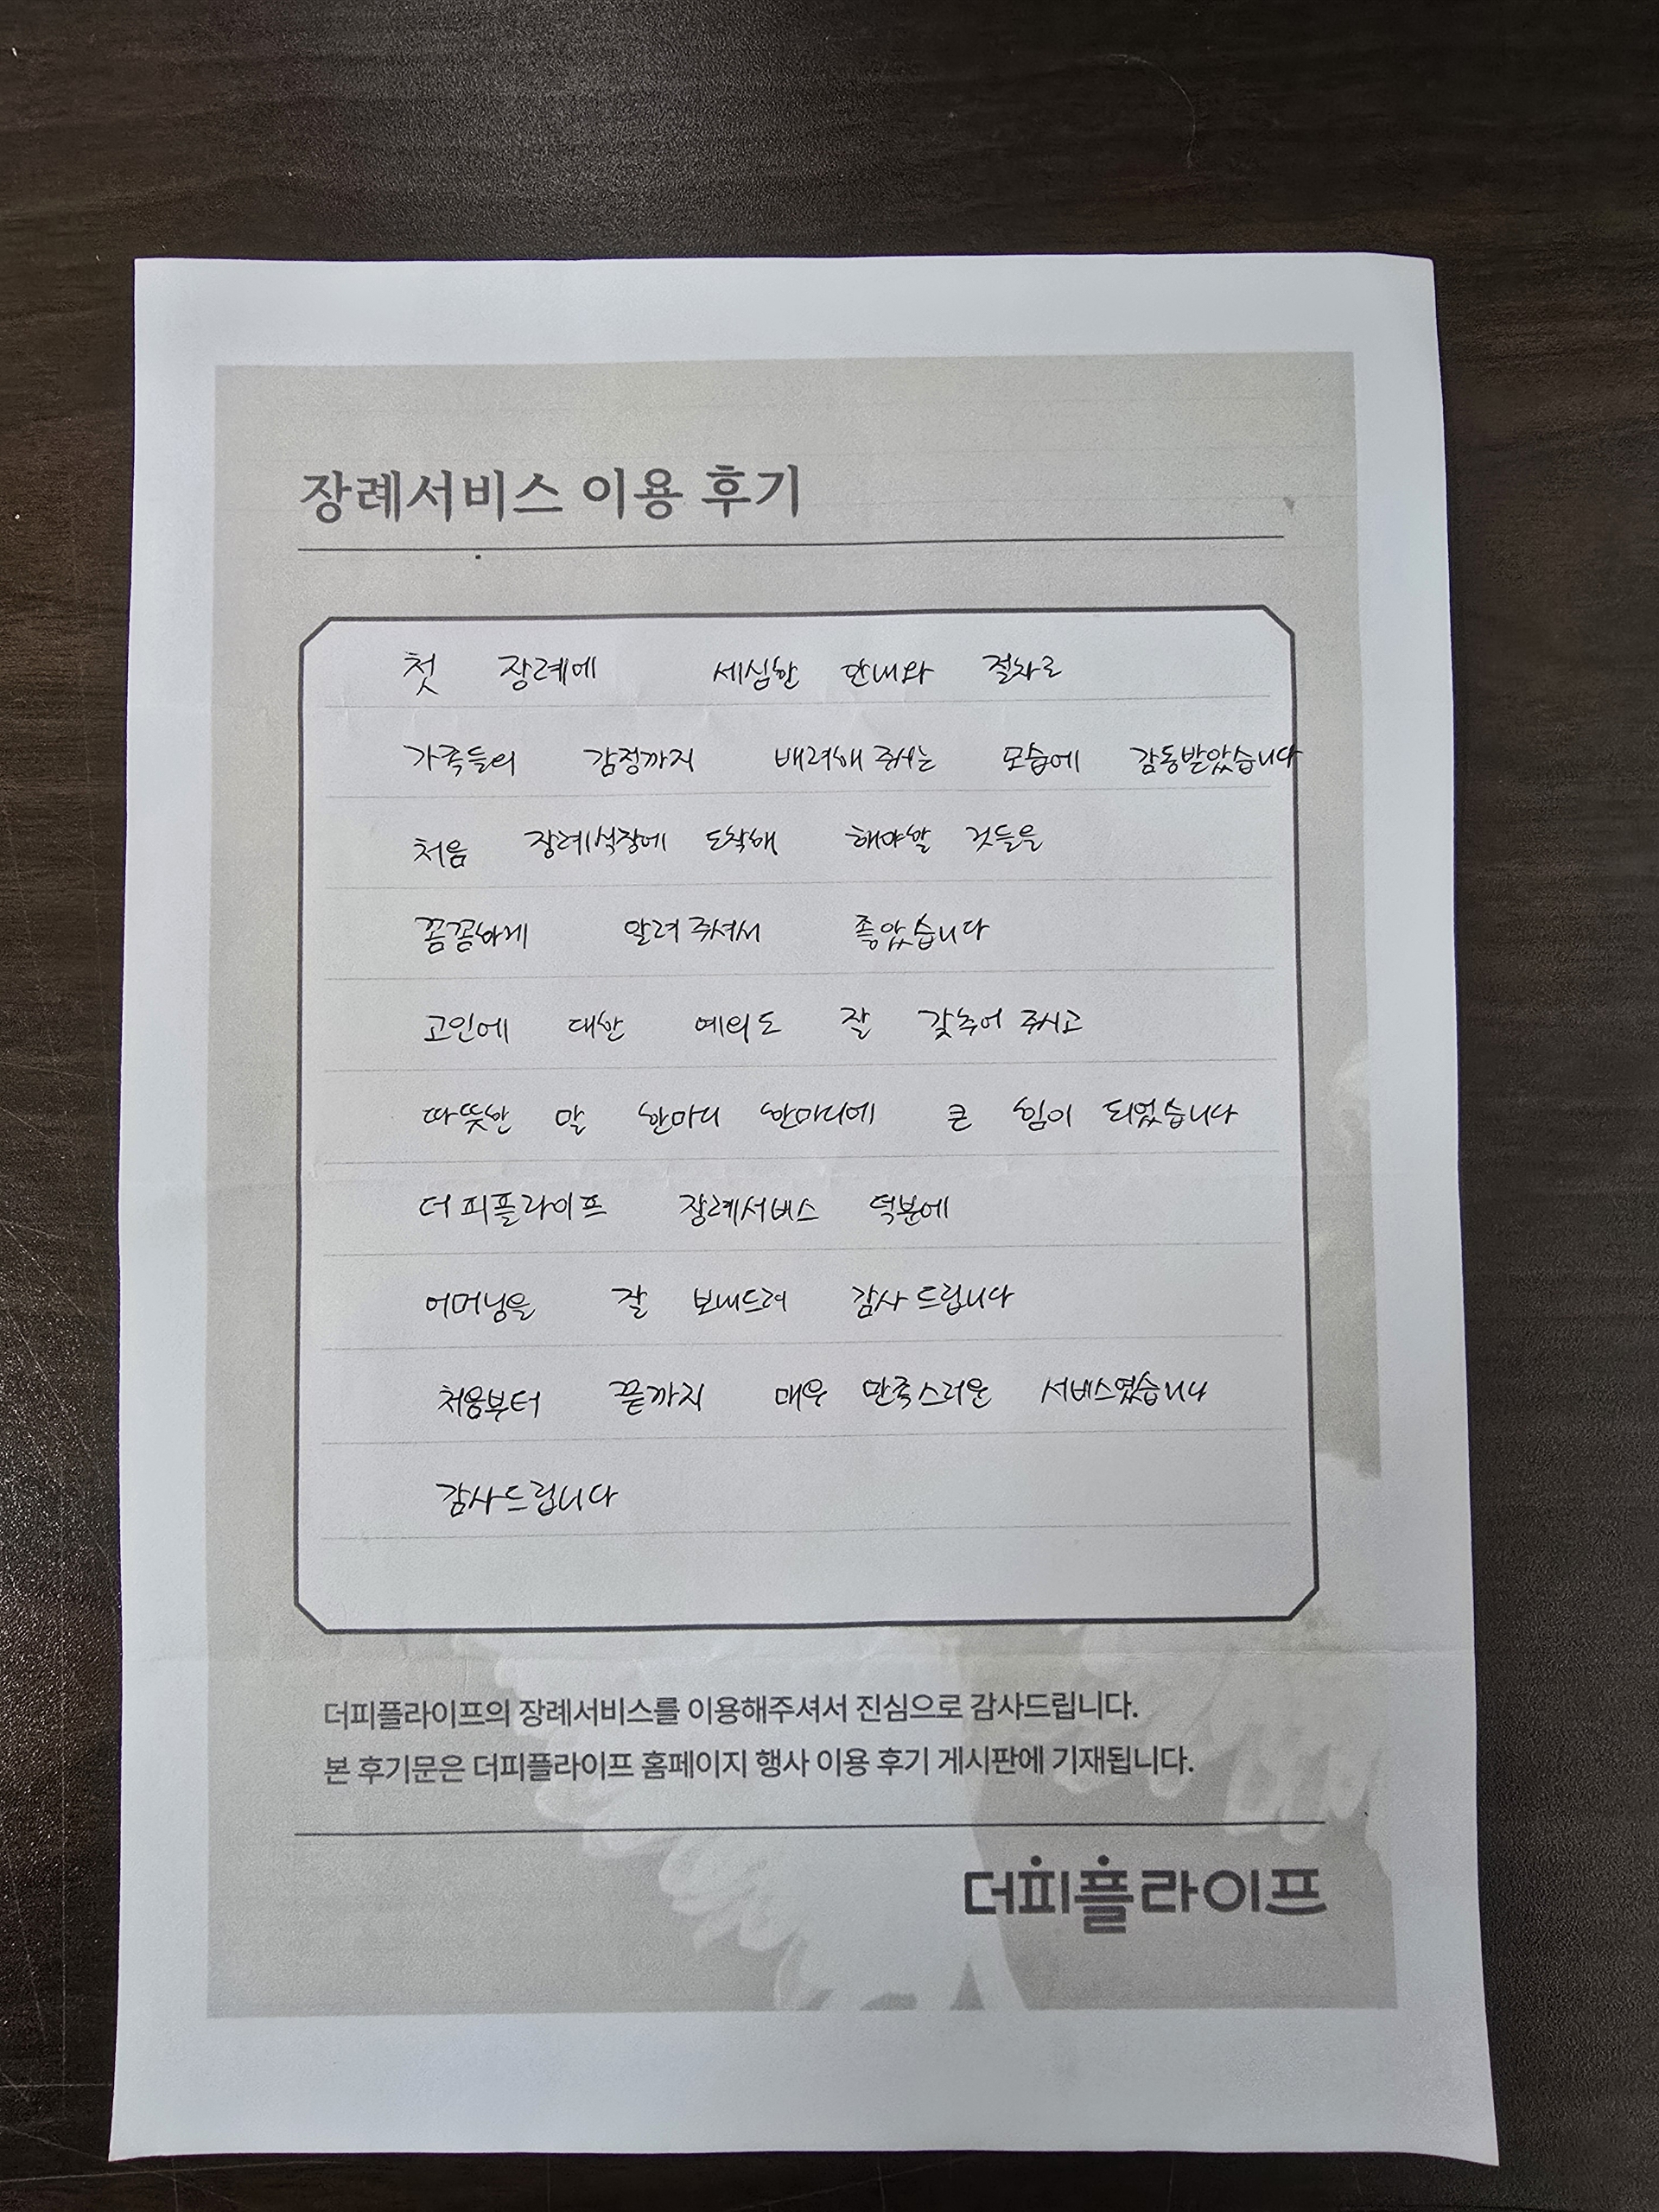 장례서비스 이용 후기
첫 장례에 세심한 안내와 절차로
가족들의 감정까지 배려해 주시는 모습에 감동받았습니다
처음 장례식장에 도착해 해야할 것들을
꼼꼼하게 알려 주셔서 좋았습니다
고인에 대한 예의도 잘 갖추어 주시고
따뜻한 말 한마디 한마디에 큰 힘이 되었습니다
더 피플라이프 장례서비스 덕분에
어머님을 잘 보내드려 감사 드립니다
처음부터 끝까지 매우 만족스러운 서비스였습니다
감사드립니다
더피플라이프의 장례서비스를 이용해주셔서 진심으로 감사드립니다.
본 후기문은 더피플라이프 홈페이지 행사 이용 후기 게시판에 기재됩니다.
더피플라이프